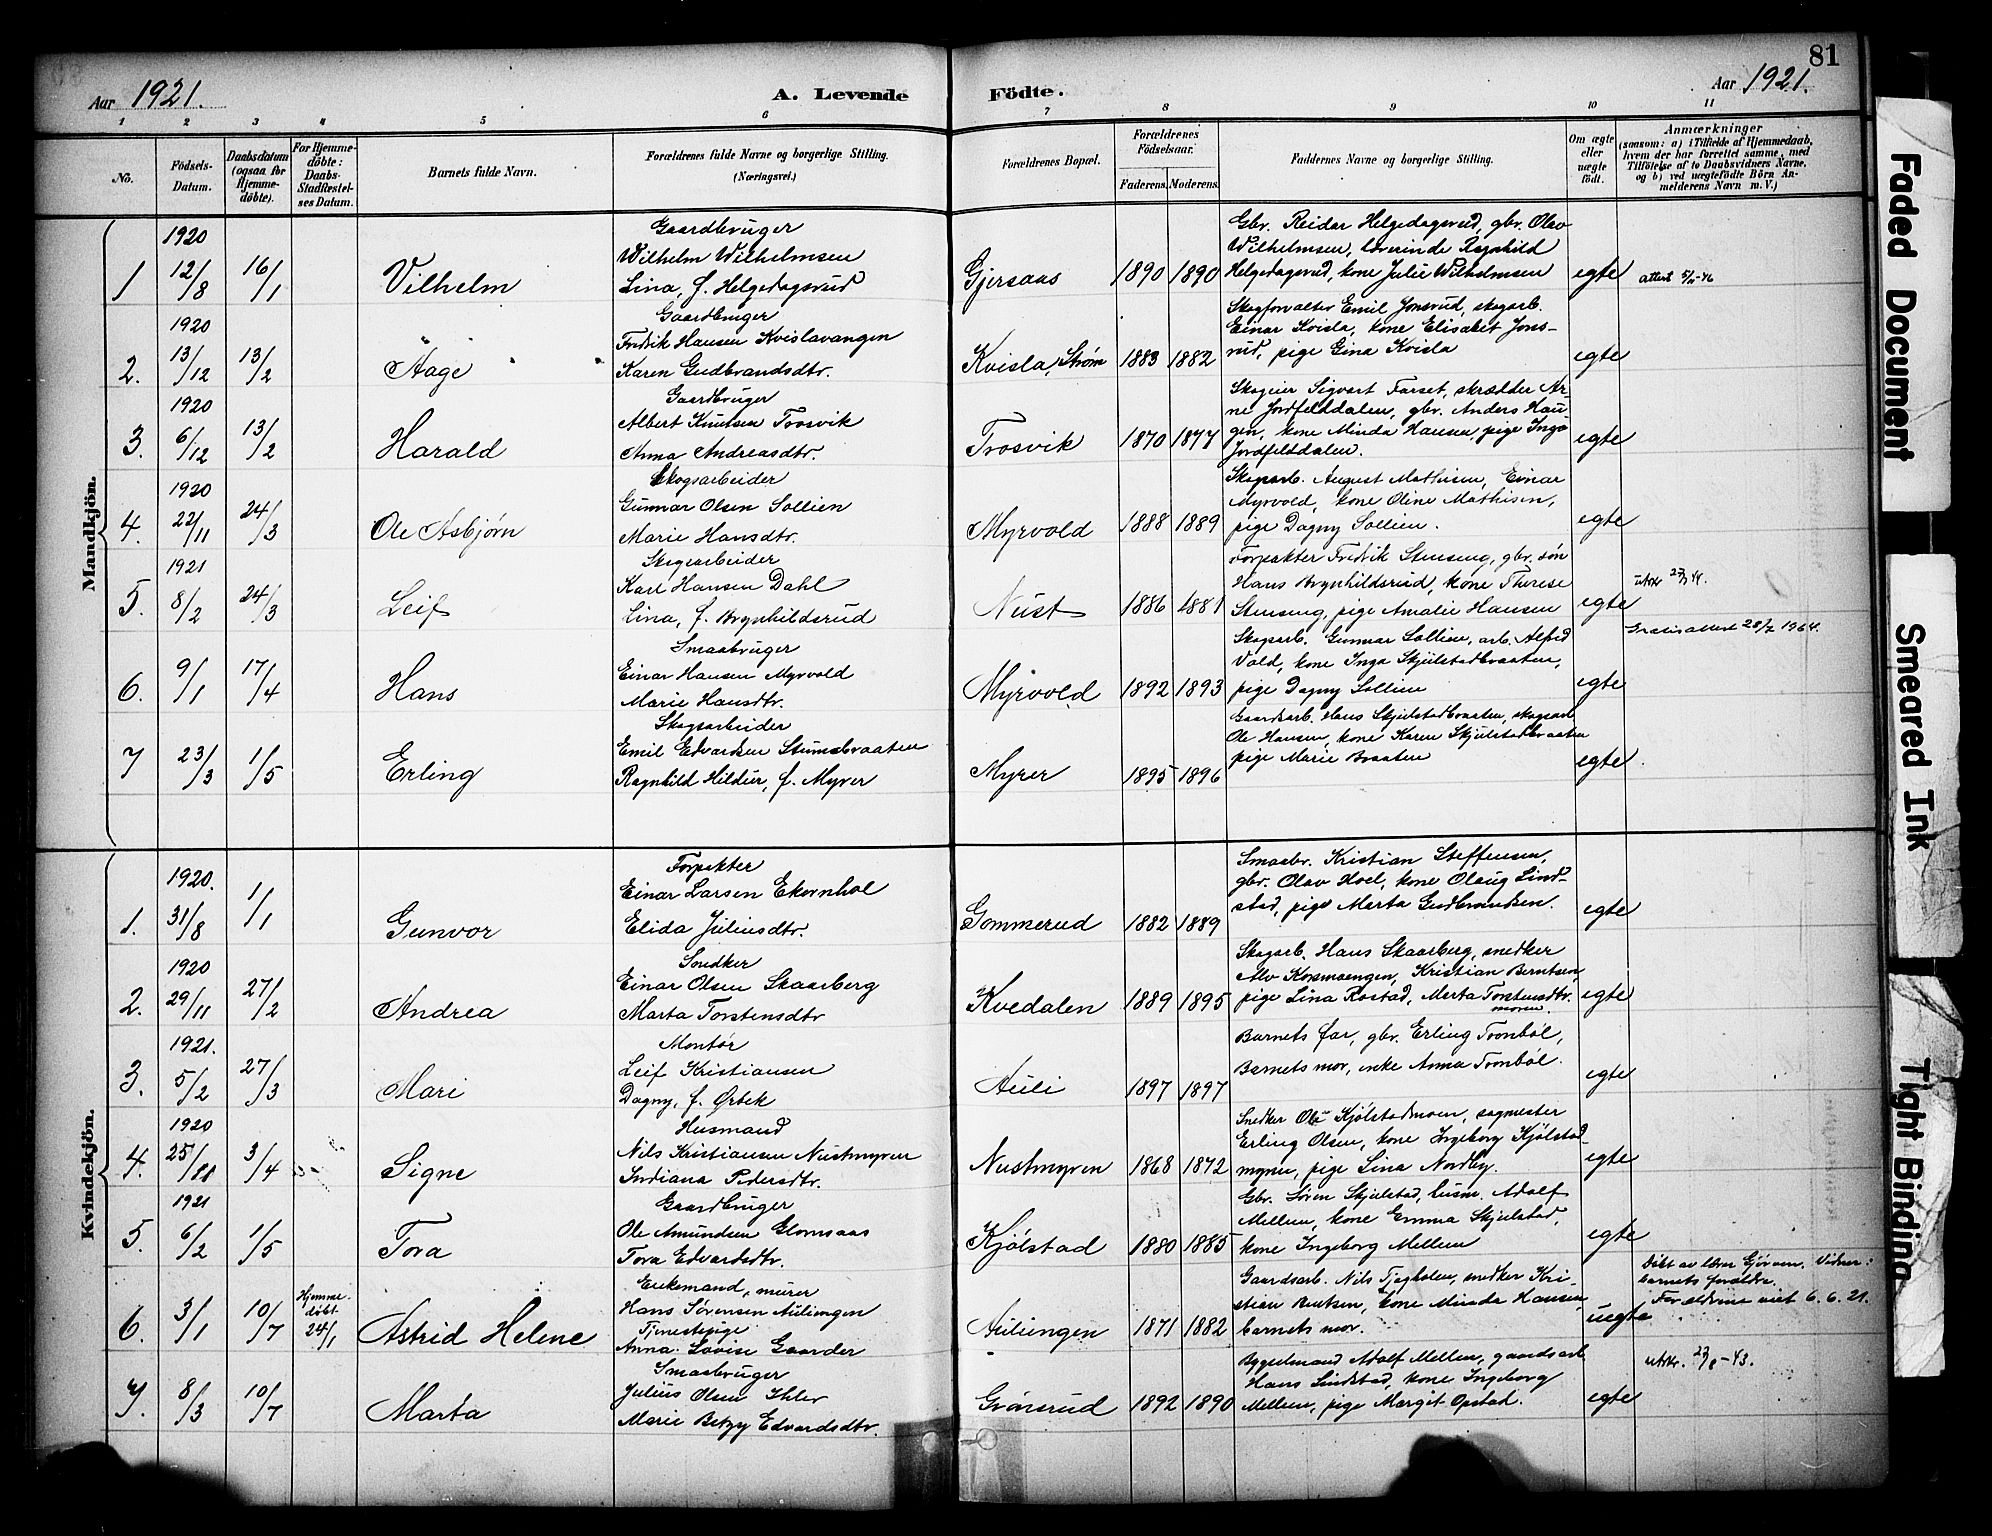 81
Aar 1921.
A. Levende Födte.
Aar 1921.
1 2 3 4 5 6 7 8 9 10 11
No.
Födsels-
Datum.
Daabsdatum
(ogsaa for
Hjemme-
döbte).
For Hjemme-
döbte:
Daabs-
Stadfæstel-
ses Datum.
Barnets fulde Navn.
Forældrenes fulde Navne og borgerlige Stilling.
(Næringsvei.)
Forældrenes Bopæl.
Forældrenes
Födselsaar.
Faderens. Moderens.
Faddernes Navne og borgerlige Stilling.
Om ægte
eller
uægte
födt.
Anmærkninger
(saasom: a) i Tilfælde af Hjemmedaab,
hvem der har forrettet samme, med
Tilföielse af to Daabsvidners Navne,
og b) ved uægtefödte Börn An-
melderens Navn m. V.)
Mandkjön.
1 1920 12/8 16/1 Vilhelm
Gaardbruger
Wilhelm Wilhelmsen
Lina, f. Helgedagsrud
Gjersaas 1890 1890
Gbr. Reidar Helgedagsrud, gbr. Olav
Wilhelmsen, lærerinde Ragnhild
Helgedagsrud, kone Julie Wilhelmsen
egte
2. 1920 13/12 13/2 Aage
Gaardbruger
Fredrik Hansen Kvislavangen
Karen Gudbrandsdtr.
Kvisla, Strøm 1883 1882
Skogforvalter Emil Jonsrud, skogarb.
Einar Kvisla, kone Elisabet Jons-
rud, pige Gina Kvisla
egte
3. 1920 6/12 13/2 Harald
Gaardbruger
Albert Knutsen Trosvik
Anna Andreasdtr.
Trosvik 1870 1877
Skogeier Sigvart Farset, skrædder Ar-
ne Jordfeltdalen, gbr. Anders Hau-
gen, kone Minda Hansen, pige Inga
Jordfeltdalen.
egte
4. 1920 22/11 24/3 Ole Asbjørn
Skogsarbeider
Gunnar Olsen Sollien
Marie Hansdtr.
Myrvold 1888 1889
Skogsarb. August Mathisen, Einar
Myrvold, kone Oline Mathisen,
pige Dagny Sollien.
egte
5. 1921 8/2 24/3 Leif
Skogsarbeider
Karl Hansen Dahl
Lina, f. Brynhildsrud
Nust 1886 1881
Forpakter Fredrik Stenseng, gbr. søn
Hans Brynhildsrud, kone Therese
Stenseng, pige Amalie Hansen
egte
Gratis attest 28/7 1964.
6. 9/1 17/4 Hans
Smaabruger
Einar Hansen Myrvold
Marie Hansdtr.
Myrvold 1892 1893
Skogsarb. Gunnar Sollien, arb. Alfred
Vold, kone Inga Skjelstadbraaten,
pige Dagny Sollien
egte
7 23/3 1/5 Erling
Skogsarbeider
Emil Edvardsen Stumsbraaten
Ragnhild Hildur, f. Myrer
Myrer 1895 1896
Gaardsarb. Hans Skjelstadbraaten, skogsarb.
Ole Hansen, kone Karen Skjelstadbraaten
pige Marie Braaten
egte
Kvindekjön.
1. 1920. 31/8 1/1 Gunvor
Forpakter
Einar Larsen Ekornhol
Elida Juliusdtr.
Gommerud 1882 1889
Smaabr. Kristian Steffensen,
gbr. Olav Hoel, kone Olaug Lind-
stad, pige Marta Gudbrandsen.
egte
2. 1920 29/11 27/2 Andrea
Snedker
Einar Olsen Skaarberg
Marta Torstensdtr
Kvedalen 1889 1895
Skogsarb. Hans Skaarberg, snedker
Alv Korsmoengen, Kristian Berntsen,
pige Lina Rostad, Marta Torstensdtr.
moren.
egte
3. 1921. 5/2 27/3 Mari
Montør
Leif Kristiansen
Dagny, f. Ørbek
Auli 1897 1897
Barnets far, gbr. Erling Trombøl,
Barnets mor, enke Anna Trombøl.
egte
4. 1920 25/11 3/4 Signe
Husmand
Nils Kristiansen Nustmyren
Indiana Pedersdtr.
Nustmyren 1868 1872
Snedker Ole Kjølstadmoen, sagmester
Erling Olsen, kone Ingeborg Kjølstad-
myren, pige Lina Nordby.
egte
5. 1921 6/2 1/5 Tora
Gaardbruger
Ole Amundsen Glomsaas
Tora Edvardsdtr.
Kjølstad 1880 1885
Gbr. Søren Skjelstad, husm. Adolf
Mellem, kone Emma Skjelstad,
kone Ingeborg Mellem
egte
6. 3/1 10/7 Hjemme-
døbt
24/1 Astrid Helene
Enkemand, murer
Hans Sørensen Auliengen
Tjenestepige
Anna Lovise Gaarder
Auliengen 1871 1882
Gaardsarb. Nils Tjagholen, snedker Kri-
stian Berntsen, kone Minda Hansen,
barnets mor.
uegte
Døbt av lærer Gjørven. Vidner:
barnets forældre.
Forældrene viet 6.6.21.
7. 8/3 10/7 Marta
Smaabruger
Julius Olsen Ihler
Marie Betzy Edvardsdtr.
Grønsrud 1892 1890
Bygselmand Adolf Mellem, gaardsarb.
Hans Lindstad, kone Ingeborg
Mellem, pige Margit Opstad.
egte
Faded Document
Smeared Ink
Tight Binding